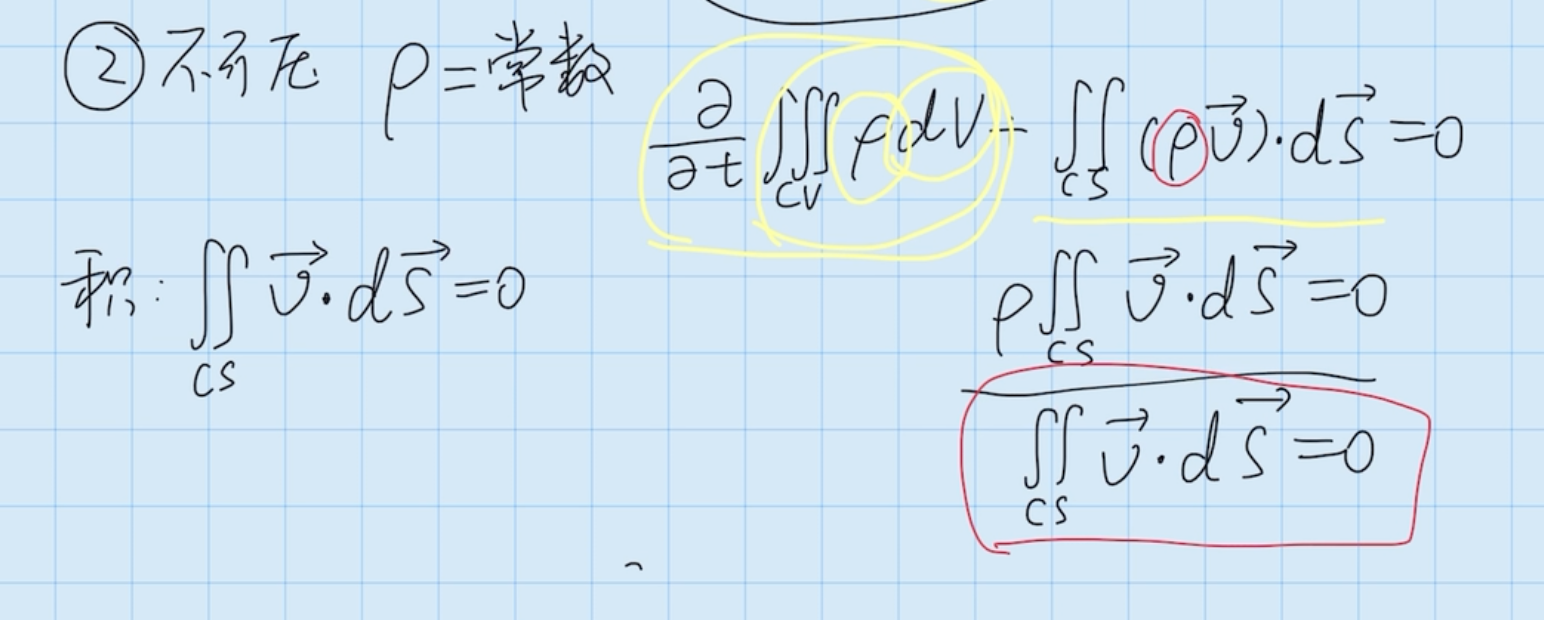 ② 不可压 ρ=常数
∂/∂t ∭_CV ρdV + ∬_CS (ρv⃗)·dS⃗ =0
积: ∬_CS v⃗·dS⃗ =0
ρ∬_CS v⃗·dS⃗ =0
∬_CS v⃗·dS⃗ =0